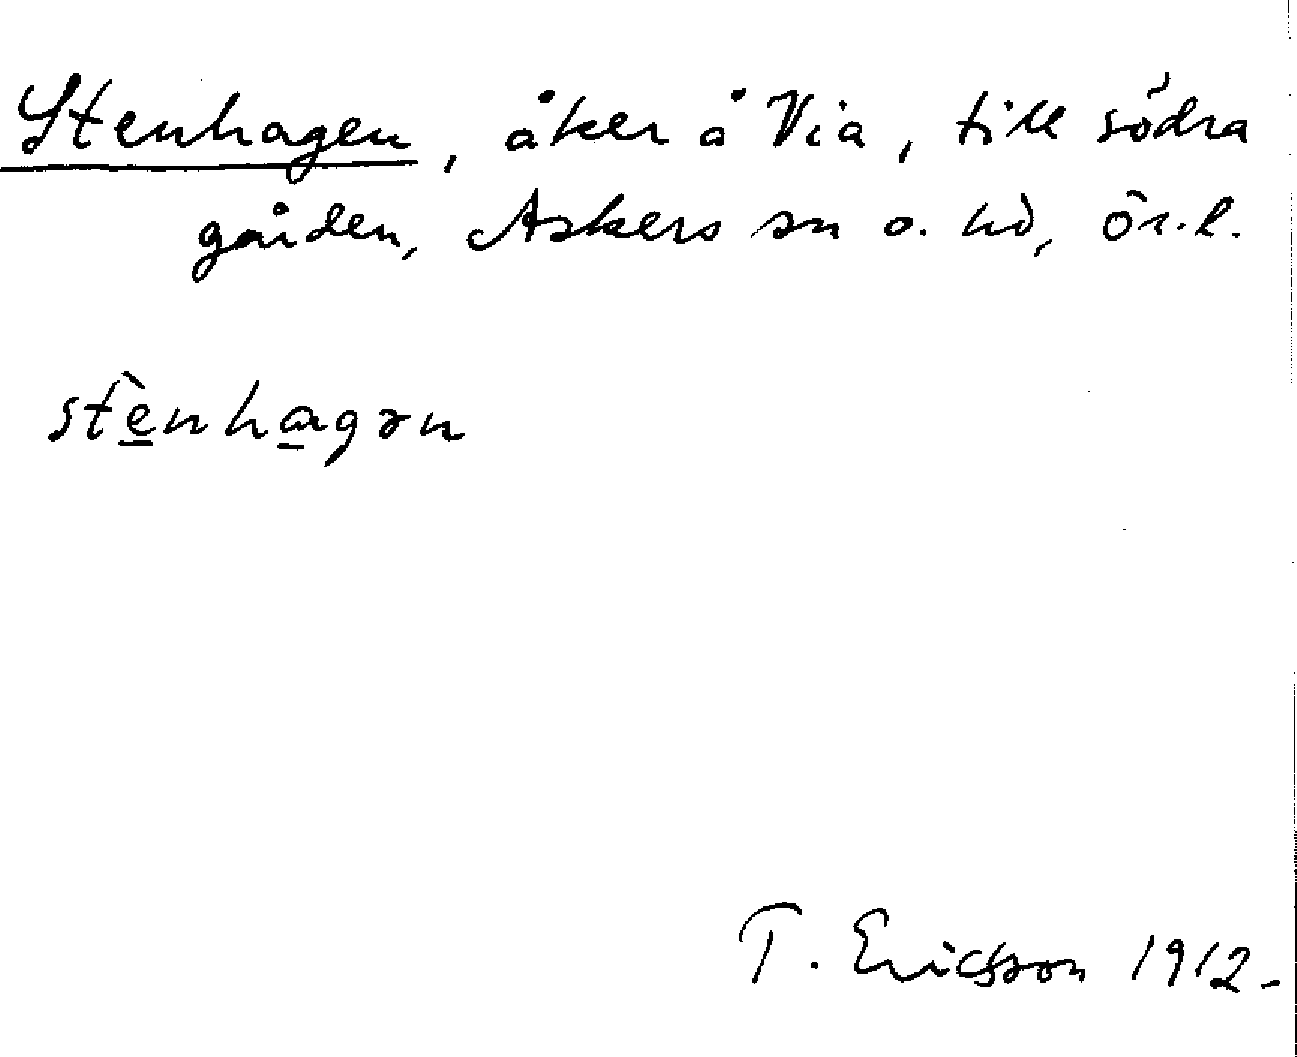 Stenhagen, åker å Via, till södra
gården, Askers sn o. hd, Ör. l.
stènhagən
T. Ericsson 1912.